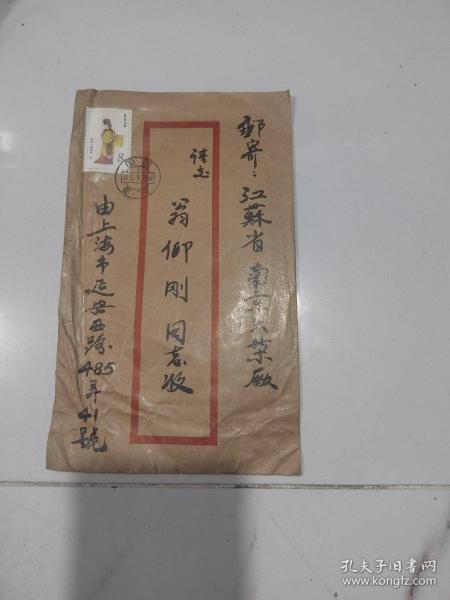 郵寄：江蘇省南京火柴厰
翁仰刚同志收
由上海市延安西路485弄41號
8
孔夫子旧书网
www.kongfz.com